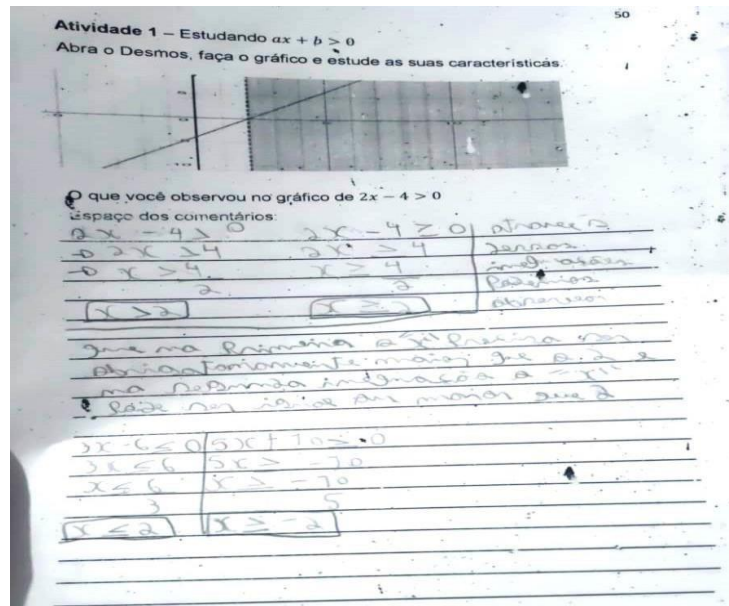 50
Atividade 1 – Estudando ax + b > 0
Abra o Desmos, faça o gráfico e estude as suas características.
O que você observou no gráfico de 2x − 4 > 0
Espaço dos comentários:
2x - 4 > 0 2x - 4 ≥ 0 através
→ 2x > 4 2x ≥ 4
→ x > 4 x ≥ 4
2 2
x > 2 x ≥ 2 observar
que na primeira o "x" precisa ser
obrigatoriamente maior que o 2 e
na segunda inequação o "x"
pode ser igual ou maior que 2
3x - 6 ≤ 0 5x + 10 ≥ 0
3x ≤ 6 5x ≥ -10
x ≤ 6 x ≥ -10
3 5
x ≤ 2 x ≥ -2